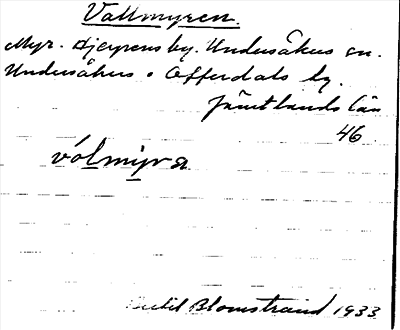 Vallmyren.
Myr. Hjerpens by. Undersåkers sn.
Undersåkers o Offerdals tg.
Jämtlands län
46
vólmỳra
Bertil Blomstrand 1933